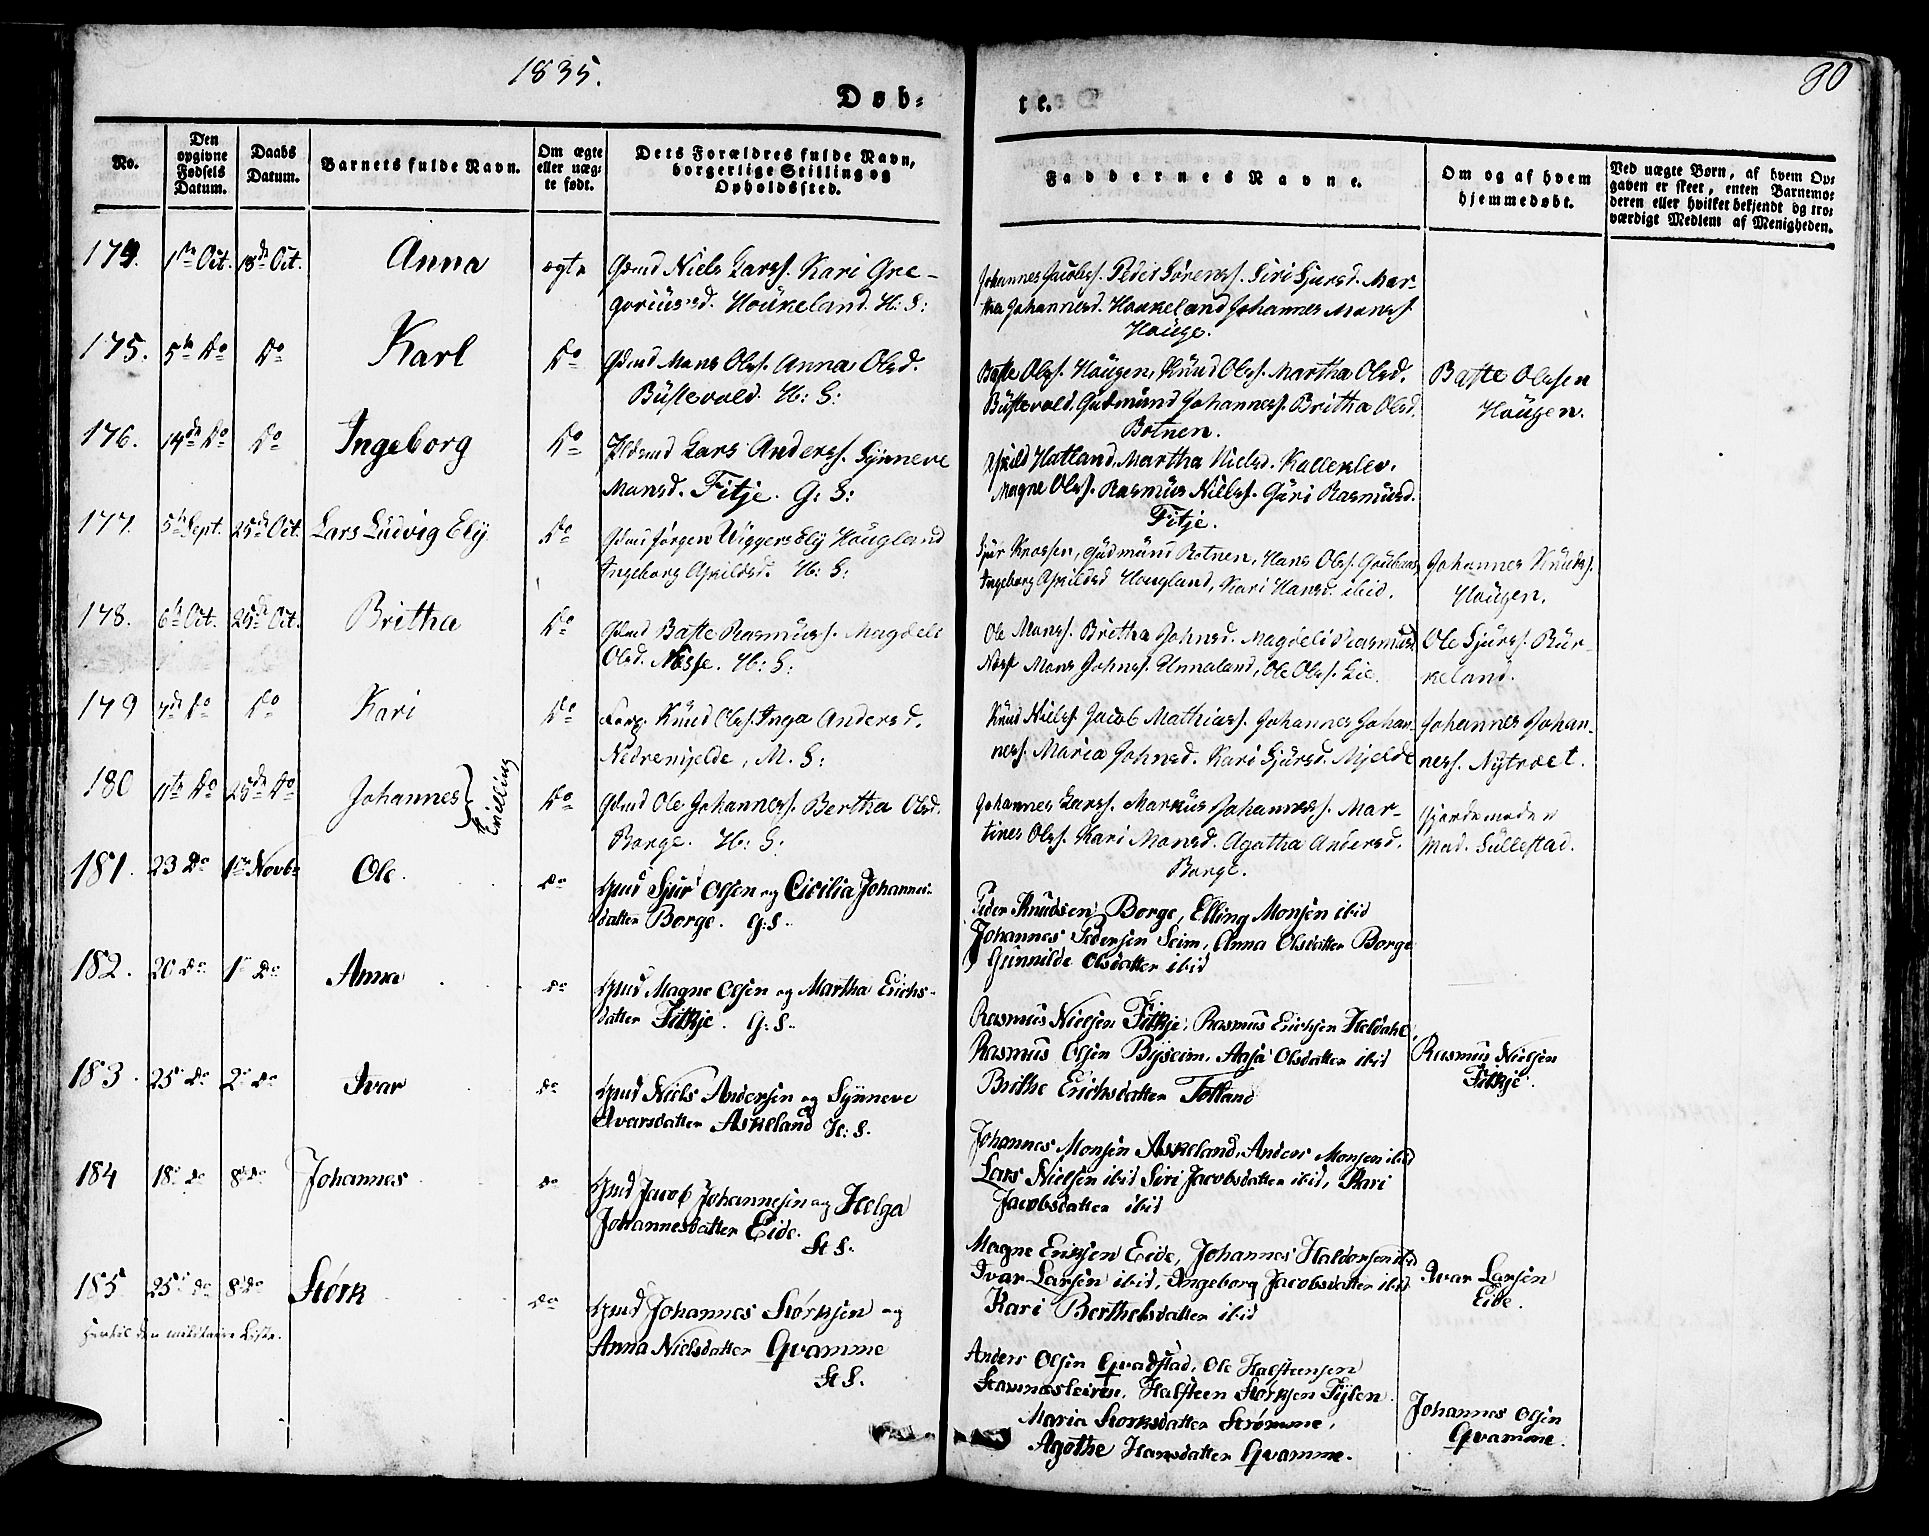 1835.
80
Døb-
te.
No.
Den opgivne Fødsels Datum.
Daabs Datum.
Barnets fulde Navn.
Om ægte eller uægte født.
Dets Forældres fulde Navn, borgerlige Stilling og Opholdssted.
Faddernes Navne.
Om og af hvem hjemmedøbt.
Ved uægte Børn, af hvem Opgaven er skeet, enten Barnemoderen eller hvilket bekjendt og troværdigt Medlem af Menigheden.
174. 1ste Oct. 18de Oct. Anna ægte Gdmd Niels Larss. Kari Gre-
goriusd. Houkeland. H: S:
Johannes Jacobs. Peder Sørens. Siri Sjursd. Mar-
tha Johannesd. Houkeland Johannes Mons.
Houge.
175. 5te Do Do Karl Do Gdmd Mons Ols. Anna Olsd.
Bustevold. H: S:
Baste Ols. Hougen, Knud Ols. Martha Olsd.
Bustevold. Gudmund Johanness. Britha Olsd.
Botnen.
Baste Olssen
Hougen.
176. 14de Do Do Ingeborg Do Lars Anders. Synneve
Monsd. Fitje. G: S:
Hatland. Martha Nielsd. Kalleklev.
Magne Ols. Rasmus Niels. Guri Rasmusd.
Fitje.
177. 5te Sept. 25de Oct. Lars Ludvig Ely Do Gdmd Jørgen Wiggers Ely Hougland
Ingeborg Askildsd. H: S:
Sjur Krossen, Gudmund Botnen, Hans Ols.
Ingeborg Askildsd Hougland, Kari Hansd. ibid.
Johannes Knuds.
Hougen.
178. 6te Oct. 25de Oct. Britha Do Gdmd Baste Rasmuss. Magdeli
Olsd. Nesse. H: S:
Ole Mons. Britha Johnsd. Magdeli Rasmusd
Mons Johns. Unnaland, Ole Ols. Lie.
Ole Sjurs. Bür-
keland.
179 7de Do Do Kari Do Knud Ols. Inga Andersd.
Nedremjelde, M. S:
Knud Niels. Jacob Mathias. Johannes Johan-
ness. Maria Johnsd. Kari Sjursd. Mjelde
Johannes Johan-
ness. Nytræet.
180 11te Do 25de Do Johannes } Tvilling Do Gdmd Ole Johanness. Bertha Olsd.
Borge. H: S:
Johannes Larss. Markus Johanness. Mar-
tines Ols. Kari Monsd. Agatha Andersd.
Borge.
Gjordemoder
Mad. Sullestad.
181. 23 Do 1ste Novbr Ole. Do Gmd Sjur Olsen og Cicilia Johannes-
datter Borge. G: S.
Peder Knudsen Borge, Elling Monsen ibid
Johannes Pedersen Seim, Anna Olsdatter Borge
Gunnilde Olsdatter ibid
182. 20 Do 1ste Do Anna Do Gmd Magne Olsen og Martha Erichs-
datter Fitkje. G: S.
Rasmus Nielsen Fitkje, Rasmus Erichsen Heldahl
Rasmus Olsen Byseim, Aasa Olsdatter ibid
Brithe Erichsdatter Totland
Rasmus Nielsen
Fitkje.
183. 25 Do 2 Do Ivar Do Gmd Niels Andersen og Synneve
Ivarsdatter Askeland H: S.
Johannes Monsen Askeland, Anders Monsen ibid
Lars Nielsen ibid Siri Jacobsdatter ibid, Kari
Jacobsdatter ibid
184 18 Do 8 Do Johannes Do Gmd Jacob Johannesen og Helga
Johannesdatter Eide.
H S.
Magne Eriksen Eide, Johannes Haldorsen ibid
Ivar Larsen ibid, Ingeborg Jacobsdatter ibid
Kari Berthelsdatter ibid
Ivar Larsen
Eide.
185 25 Do 8 Do Størk Do Gmd Johannes Størksen og
Anna Nielsdatter Qvamme
H S.
den militaire Liste.
Anders Olsen Qvadstad, Ole Halsteensen
Stamnesleiren, Halsteen Størksen Fylen
Maria Storksdatter Strømme,
Agothe Hansdatter Qvamme.
Johannes Olsen
Qvamme.